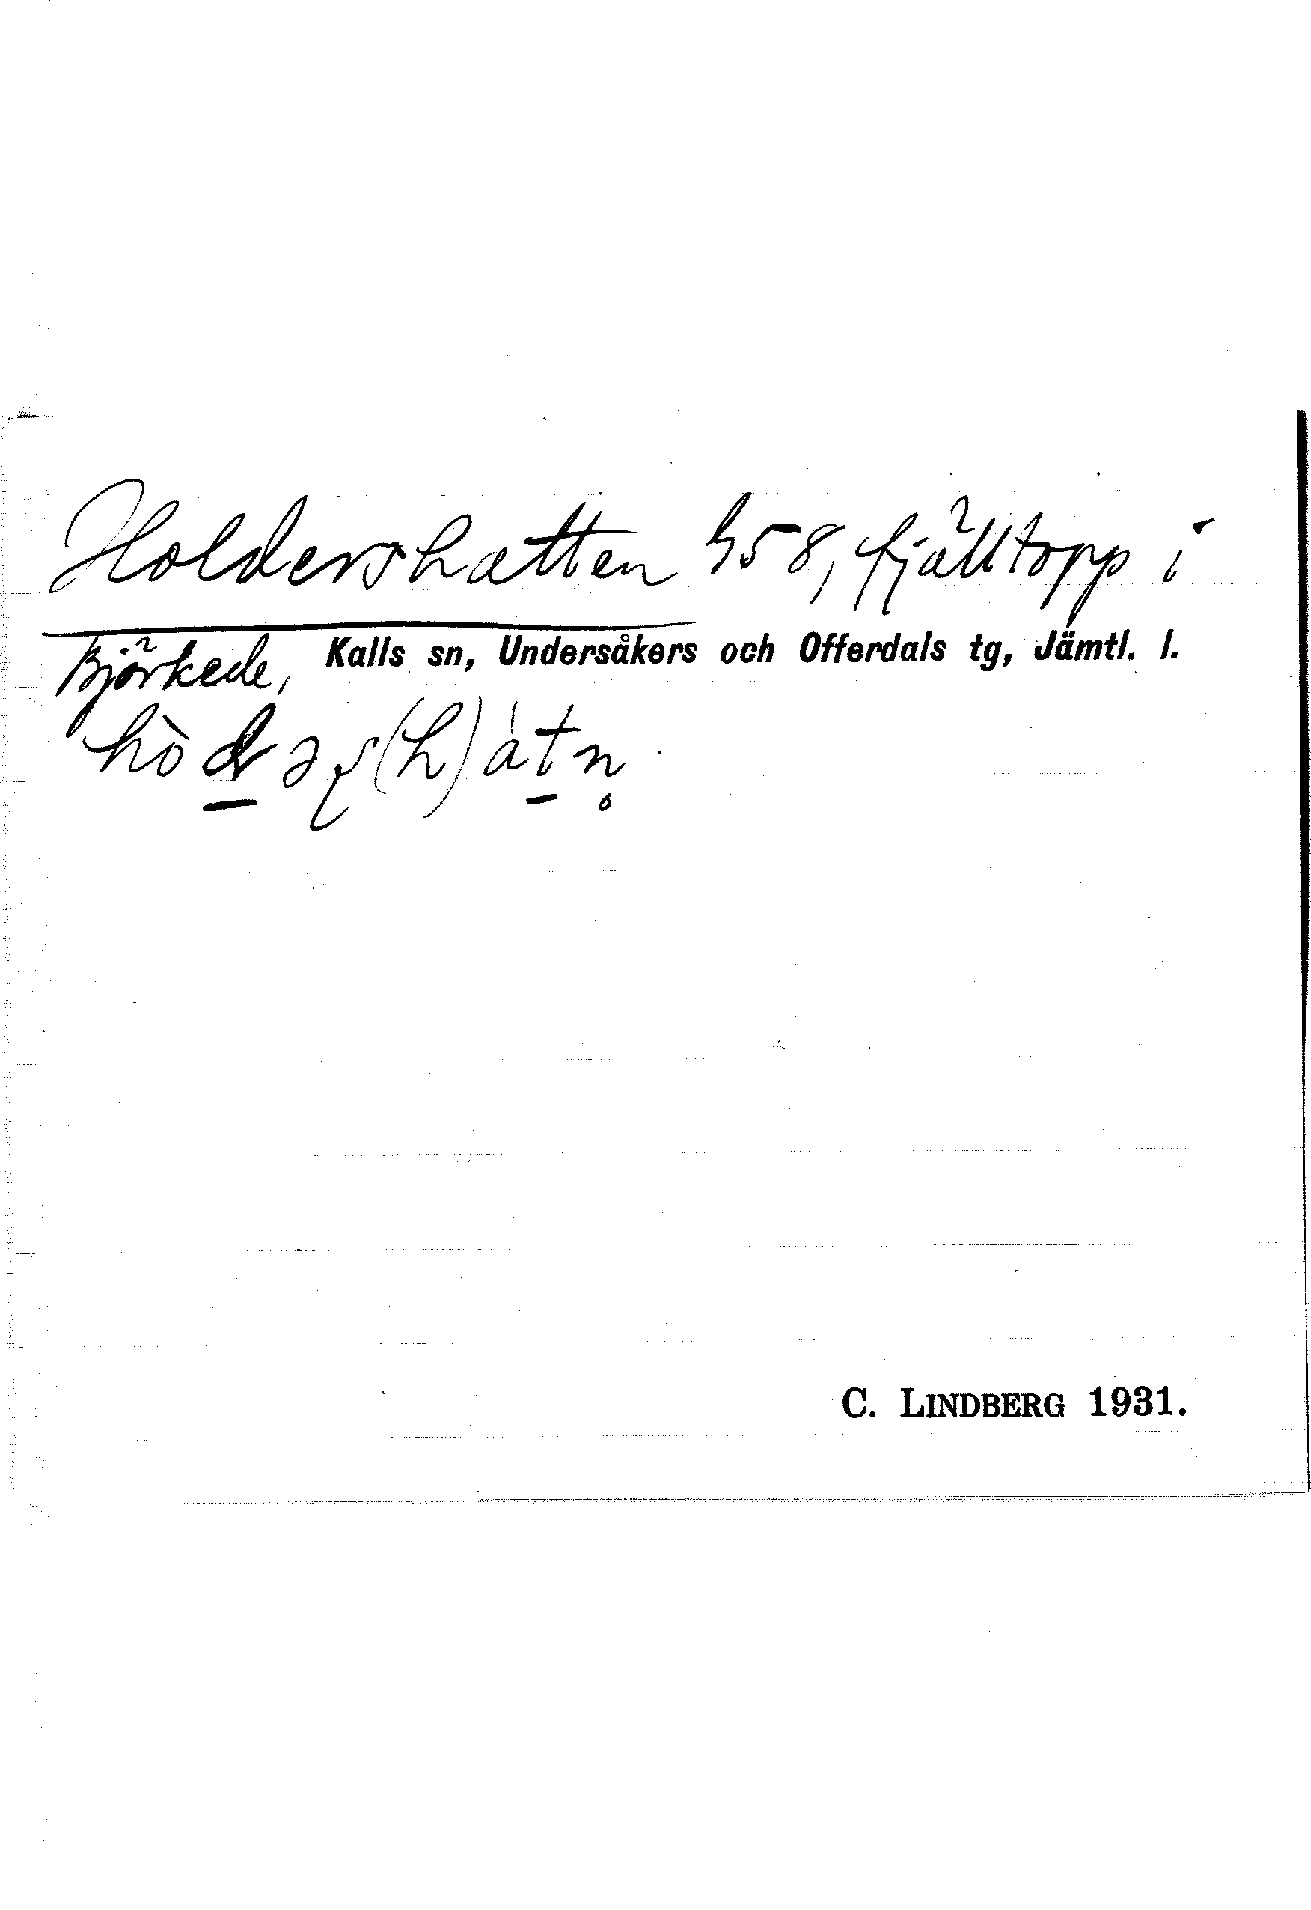 Holdershatten 458, fjälltopp i
Björkede, Kalls sn, Undersåkers och Offerdals tg, Jämtl. l.
C. LINDBERG 1931.